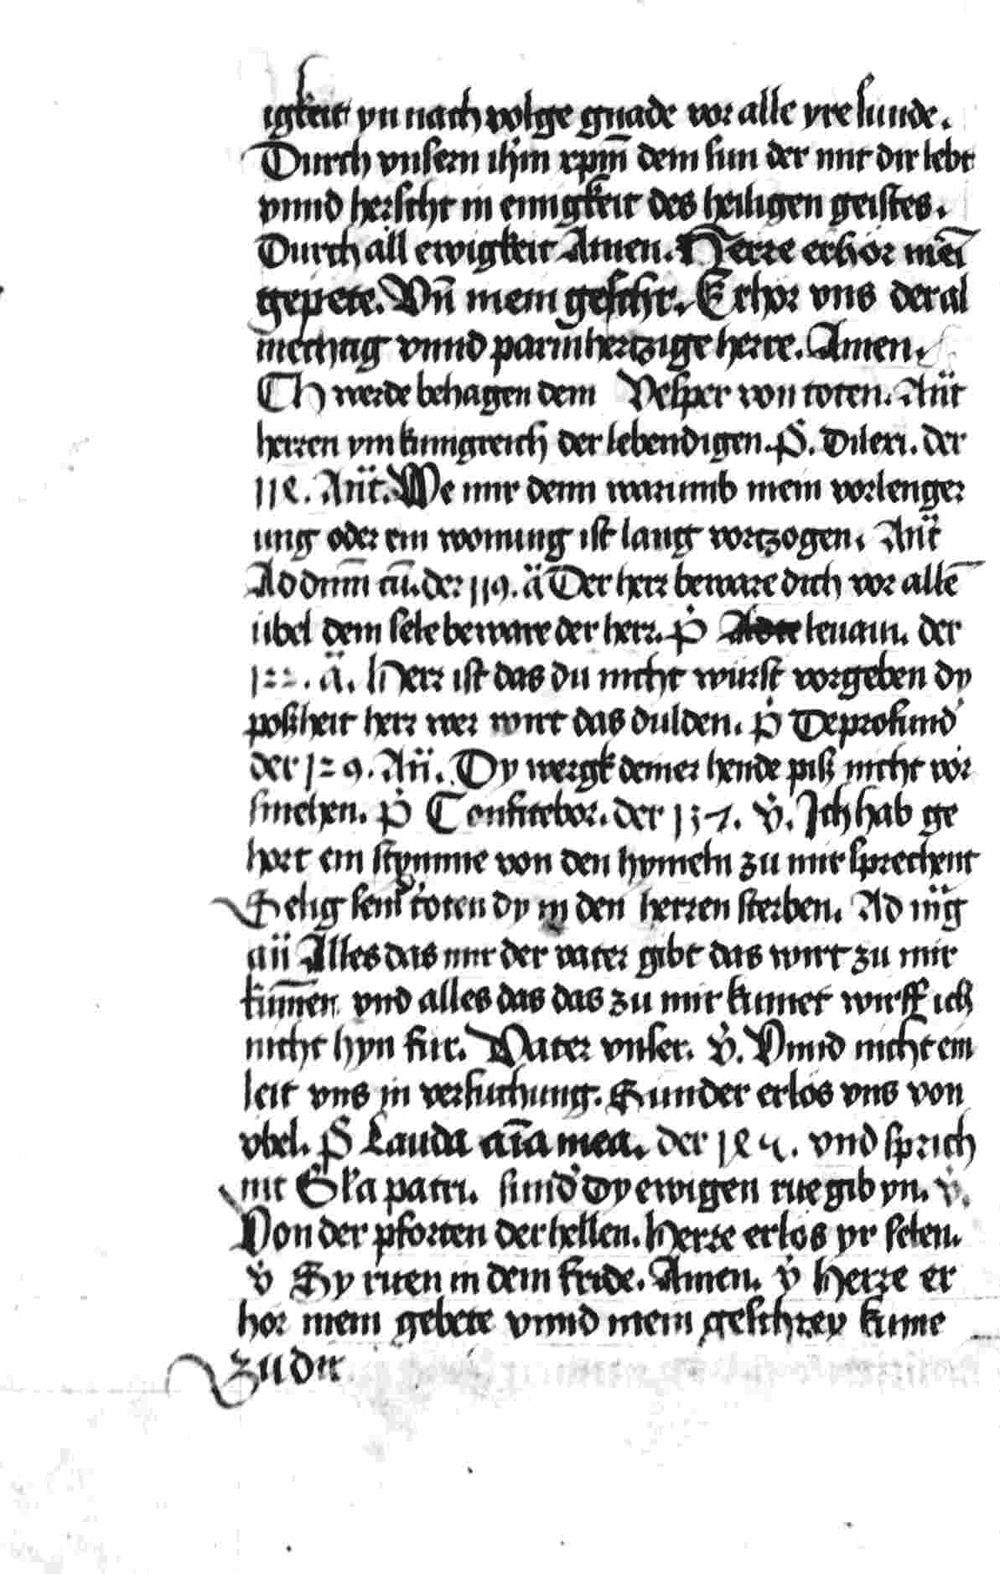 igkeit yn nach volge gnade vor alle yre sunde.
Durch vnsern ihm xpm̄ dem sun der mit dir lebt
vnnd herscht in einigkeit des heiligen geistes.
Durch all ewigkeit Amen. Herre erhor mei͂
gepete. Vn̄ mein geschr. Erhor vns der al
mechtig vnnd parmhertzige herre. Amen.
Ch werde behagen dem Vesper von toten. An̄t
herren ym kunigreich der lebendigen. P̄. Dilexi. der
114. An̄t. We mir denn warumb mein vorlenger
ung oder ein wonung ist lang vortzogen. An̄t
Ad dnm̄ cū. der 119. ä Der herr beware dich vor alle͂
übel dem sele beware der herr. P̄ leuaui. der
122. ä. Herr ist das du nicht wurst vorgeben dy
poßheit herr wer wirt das dulden. P̄ Deprofund
der 129. An̄. Dy wergk deiner hende piß nicht vor
smehen. P̄ Confitebor. der 137. v̄. Ich hab ge
hort ein stymme von den hymeln zu mir sprechent
Selig sein toten dy in den herren sterben. Ad mg̅
an̄ Alles das mir der vater gibt das wirt zu mir
kum̄en vnd alles das das zu mir kumet wirff ich
nicht hyn für. Vater vnser. v̄. Vnnd nicht ein
leit vns in versuchung. Sunder erlos vns von
vbel. P̄ Lauda aīa mea. der 145. vnd sprich
mit Gl'a patri. sund' Dy ewigen rue gib yn. v̄.
Von der pforten der hellen. Herre erlos yr selen.
v̄ Sy ruen in dem fride. Amen. v̄ Herre er
hor mein gebete vnnd mein geschrey kume
zu dir